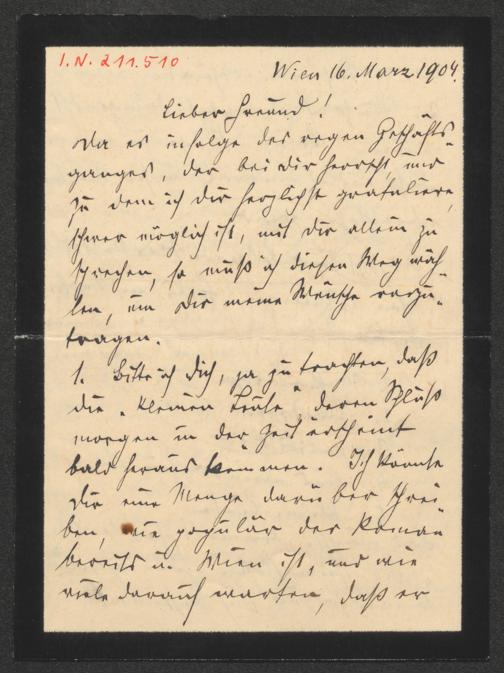 I.N. 211.510
Wien 16. März 1904.
Lieber Freund!
Da es infolge des regen Geschäfts-
ganges, der bei dir herrscht und
zu dem ich dir herzlichst gratuliere,
schwer möglich ist, mit dir allein zu
sprechen, so muß ich diesen Weg wäh-
len, um dir meine Wünsche vorzu-
tragen.
1. Bitte ich dich, ja zu trachten, daß
die „kleinen Leute“, deren Schluß
morgen in der Zeit erscheint
bald heraus kommen. Ich könnte
dir eine Menge darüber schrei-
ben, wie populär der Roman
bereits in Wien ist, und wie
viele darauf warten, daß er